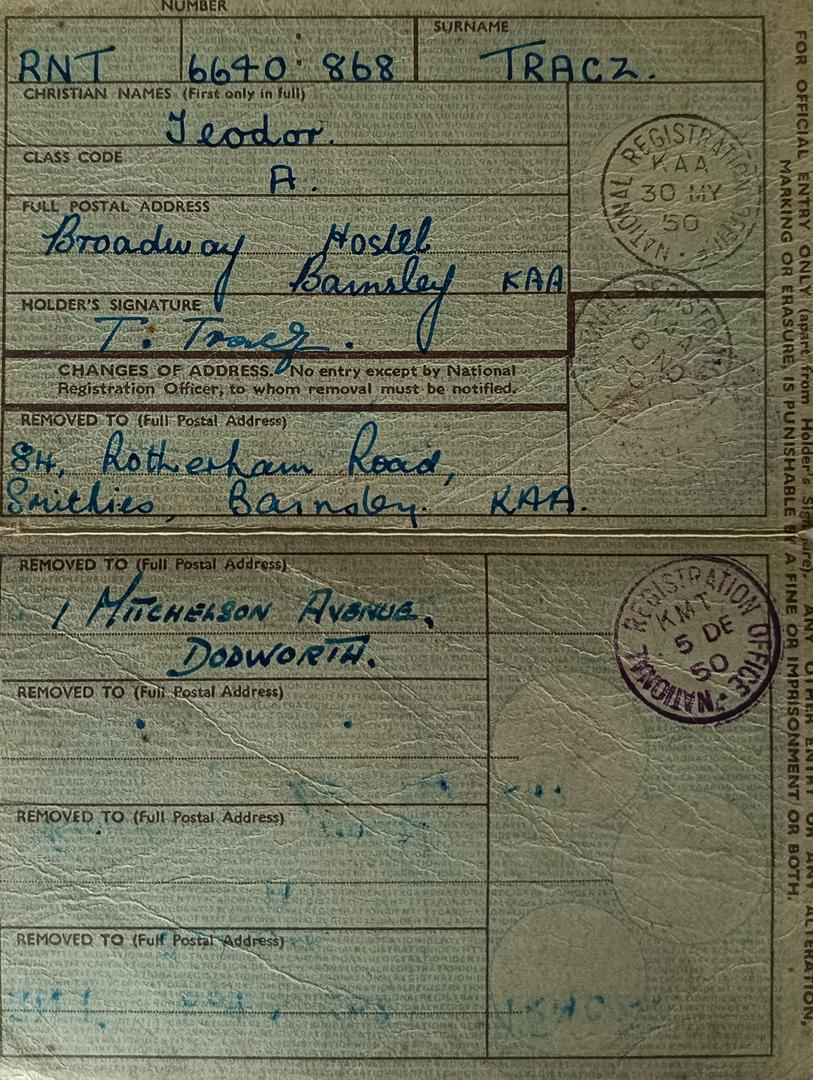 NUMBER
SURNAME
RNT 6640 : 868 TRACZ.
CHRISTIAN NAMES (First only in full)
Teodor.
CLASS CODE
A.
FULL POSTAL ADDRESS
Broadway Hostel
Barnsley KAA
HOLDER'S SIGNATURE
T. Tracz.
CHANGES OF ADDRESS. No entry except by National
Registration Officer, to whom removal must be notified.
REMOVED TO (Full Postal Address)
84, Rotherham Road,
Smithies, Barnsley. KAA.
NATIONAL REGISTRATION OFFICE
KAA
30 MY
50
KAA
NO
REMOVED TO (Full Postal Address)
1 MITCHELSON AVENUE,
DODWORTH.
NATIONAL REGISTRATION OFFICE
KMT
5 DE
50
REMOVED TO (Full Postal Address)
REMOVED TO (Full Postal Address)
REMOVED TO (Full Postal Address)
FOR OFFICIAL ENTRY ONLY (apart from Holder's Signature). ANY OTHER ENTRY OR ANY ALTERATION,
MARKING OR ERASURE, IS PUNISHABLE BY A FINE OR IMPRISONMENT OR BOTH.